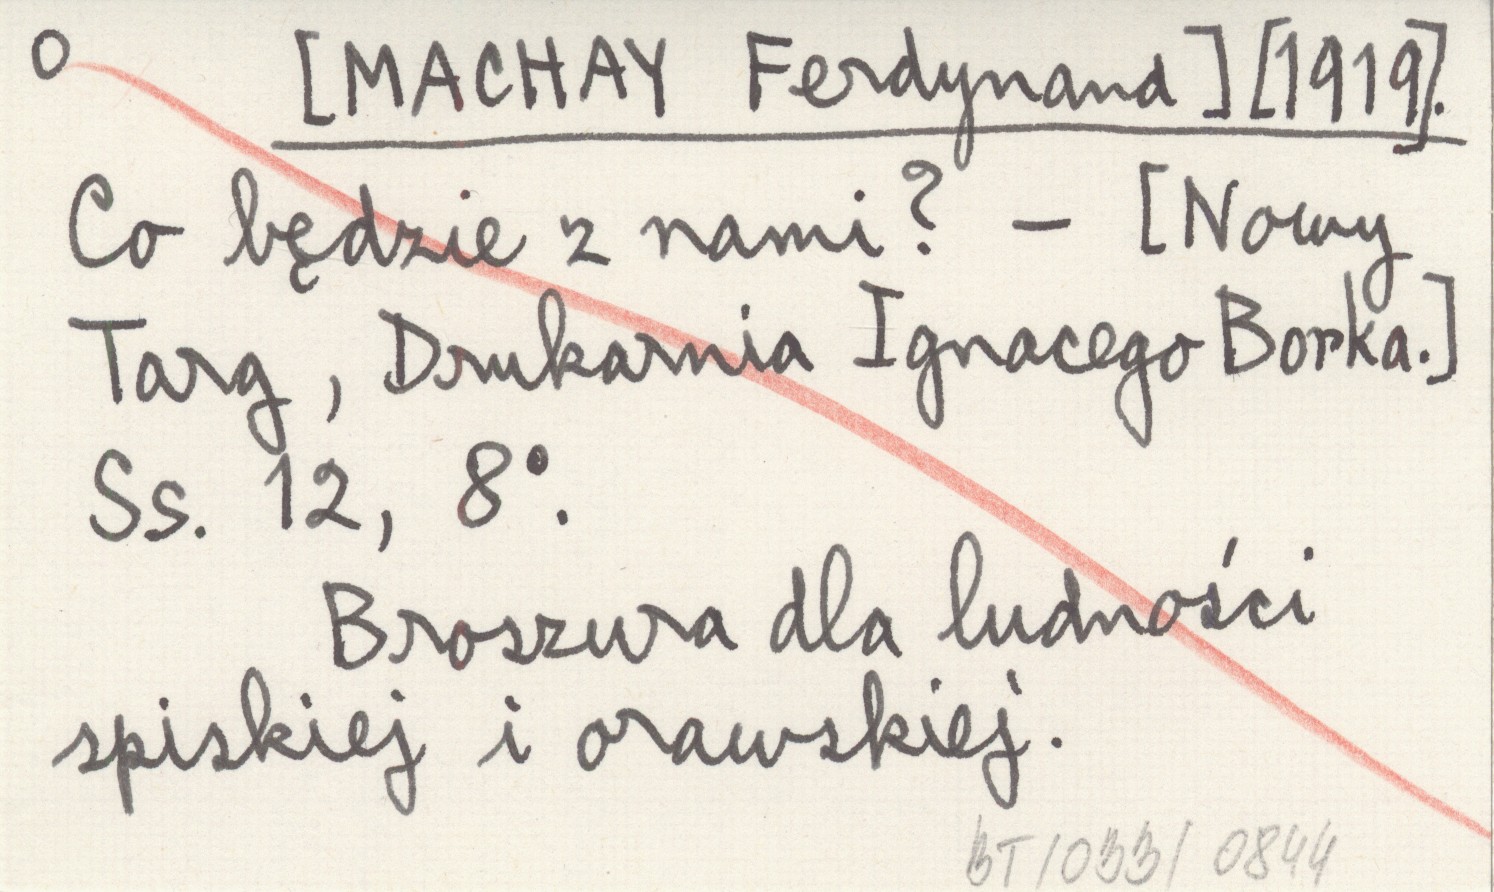 O [MACHAY Ferdynand] [1919].
Co będzie z nami? – [Nowy
Targ, Drukarnia Ignacego Borka.]
Ss. 12, 8°.
Broszura dla ludności
spiskiej i orawskiej.
BT/033/ 0844